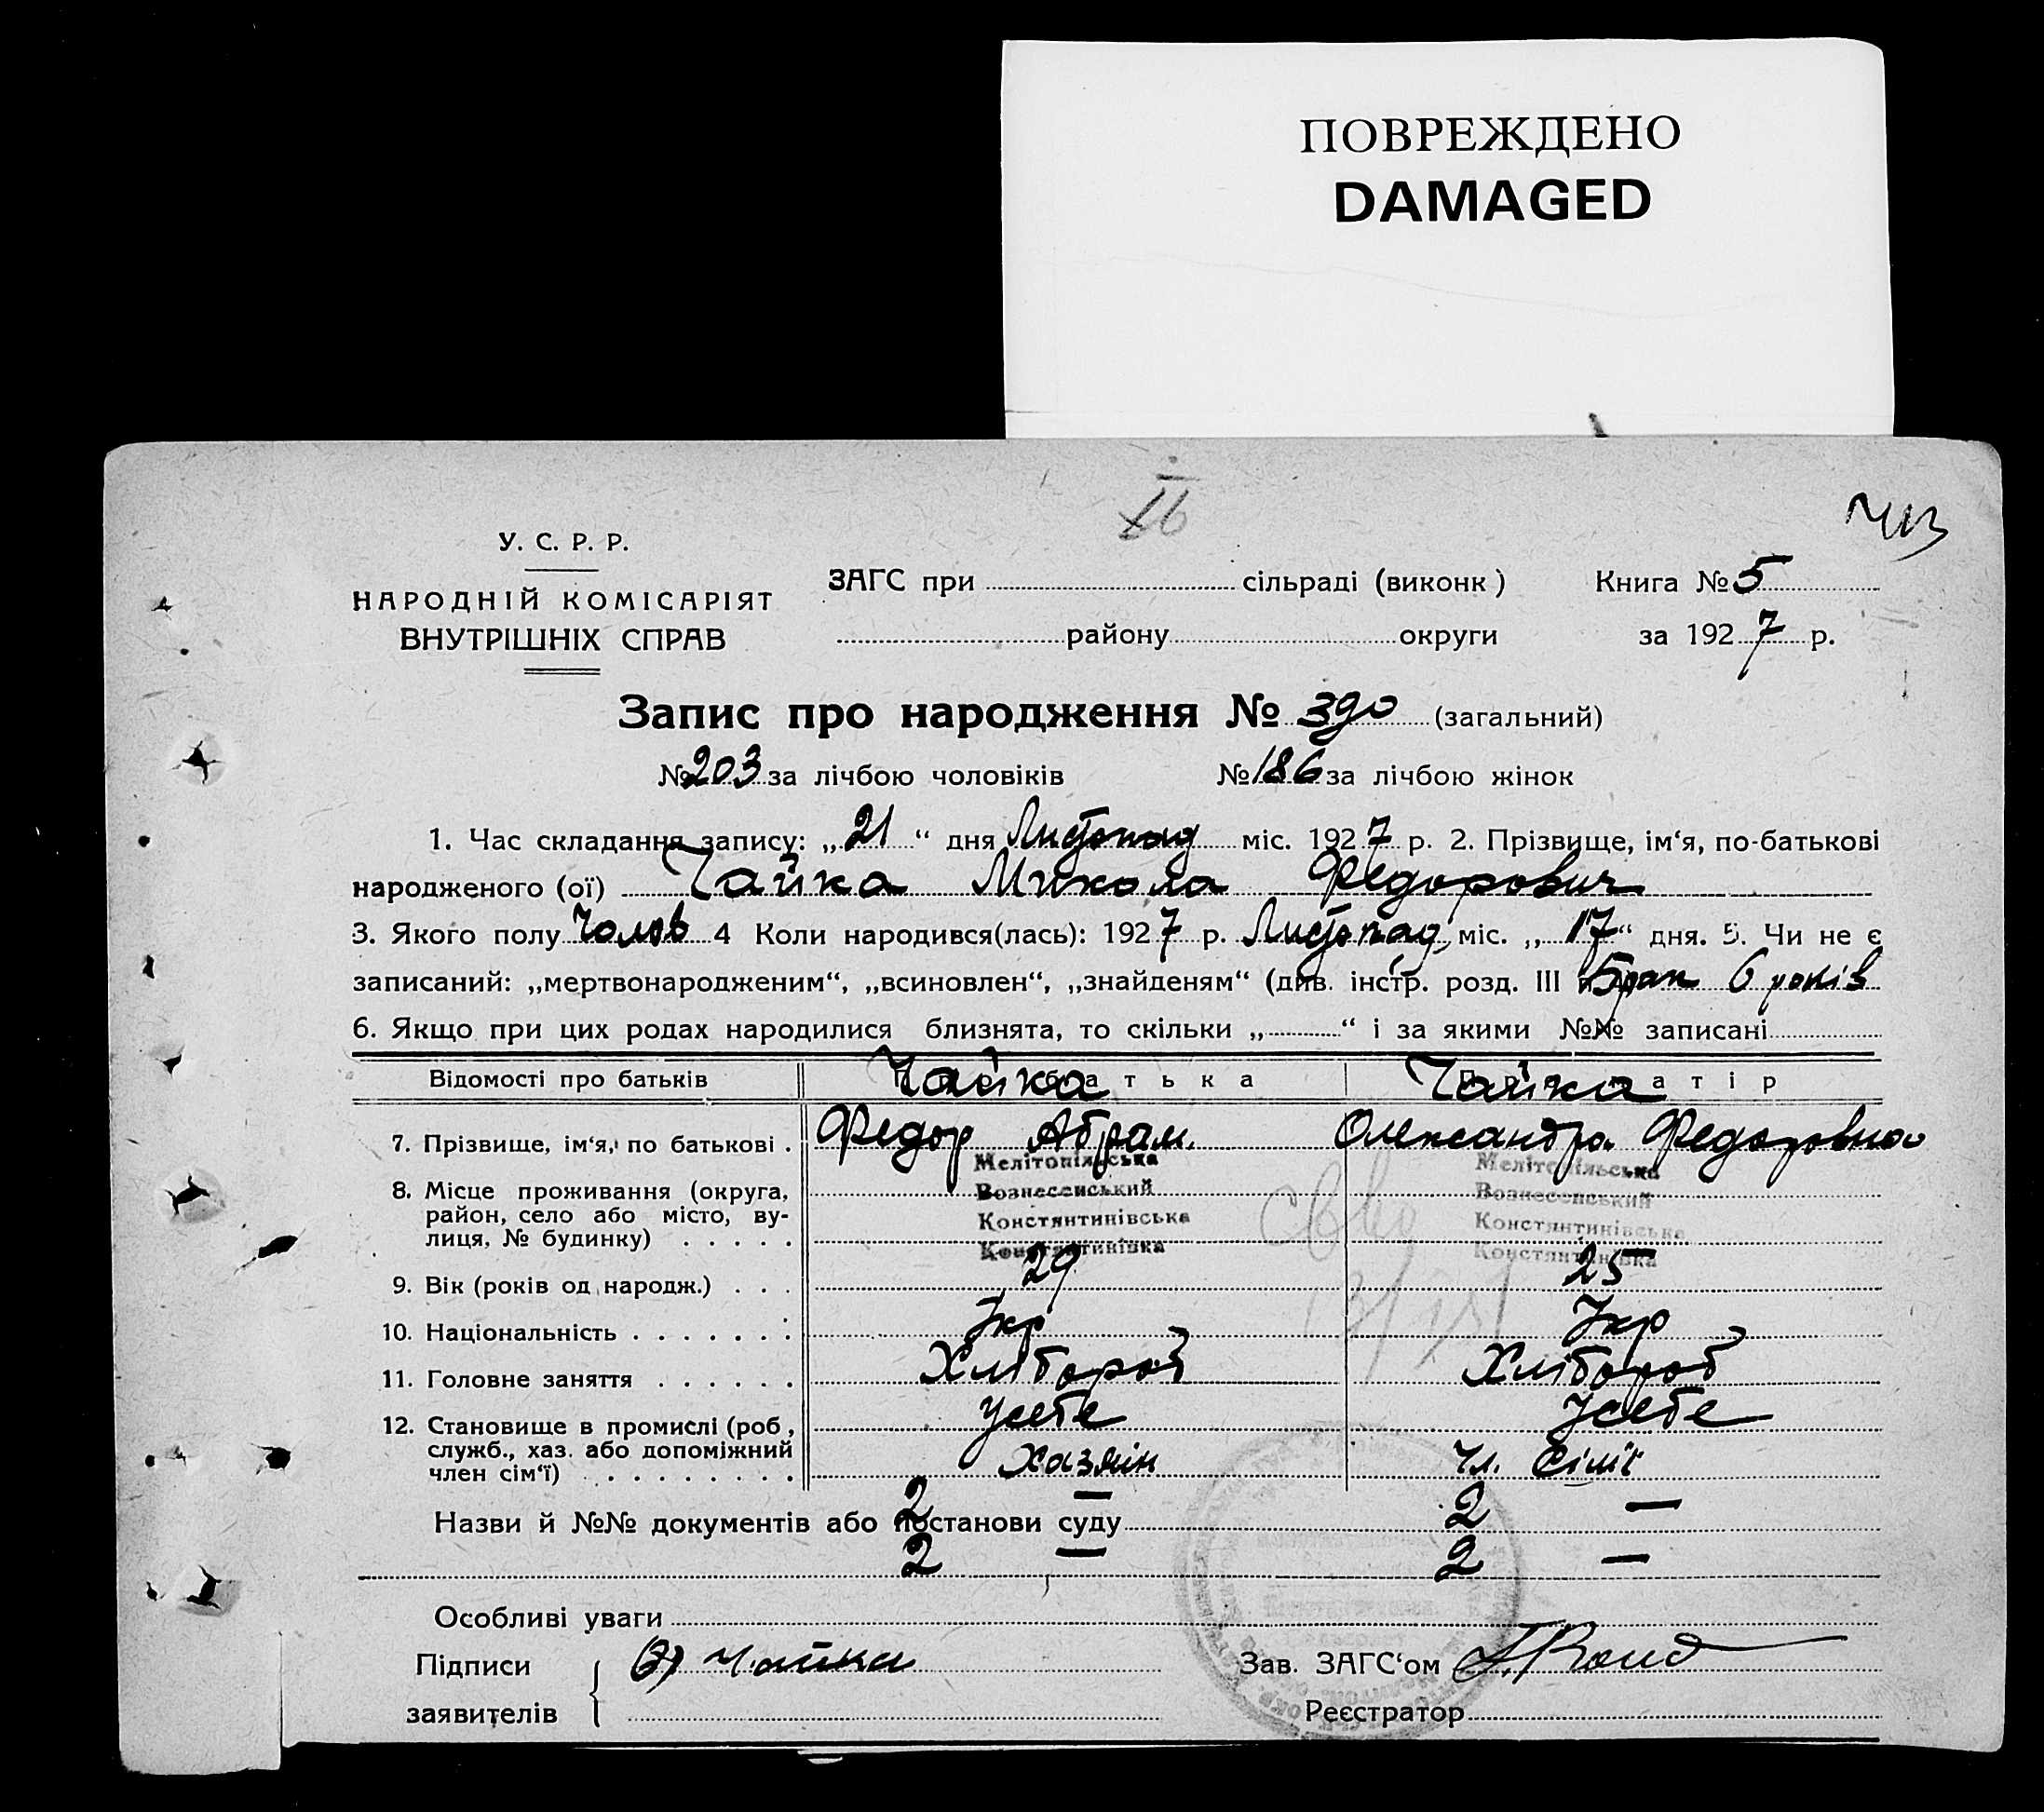 ПОВРЕЖДЕНО
DAMAGED
У. С. Р. Р.
НАРОДНІЙ КОМІСАРІЯТ
ВНУТРІШНІХ СПРАВ
ЗАГС при сільраді (виконк)
району округи
Книга № 5
за 1927 р.
Запис про народження № 390 (загальний)
№ 203 за лічбою чоловіків № 186 за лічбою жінок
1. Час складання запису: „21“ дня Листопад міс. 1927 р. 2. Прізвище, ім‘я, по-батькові
народженого (ої) Чайка Микола Федорович
3. Якого полу Чолов 4 Коли народився(лась): 1927 р. Листопад міс. „17“ дня. 5. Чи не є
записаний: „мертвонародженим“, „всиновлен“, „знайденям“ (див. інстр. розд. III Брак 6 років
6. Якщо при цих родах народилися близнята, то скільки „ “ і за якими №№ записані
Відомості про батьків Чайка батька Чайка матір
7. Прізвище, ім‘я, по батькові . Федор Абрам. Олександра Федоровна
8. Місце проживання (округа, район, село або місто, ву-
лиця, № будинку) . . . . .
Мелітопільська Мелітопільська
Вознесенський Вознесенський
Констянтинівська Констянтинівська
Констянтинівка Констянтинівка
9. Вік (років од народж.) . . . 29 25
10. Національність . . . . . . . Укр Укр
11. Головне заняття . . . . . . Хлібороб Хлібороб
12. Становище в промислі (роб, У себе У себе
служб., хаз. або допоміжний Хазяїн Чл. Сімї
член сім‘ї) . . . . . . . . .
Назви й №№ документів або постанови суду 2 — 2 —
2 — 2 —
Особливі уваги
Підписи Чайка Зав. ЗАГС‘ом
заявителів Реєстратор